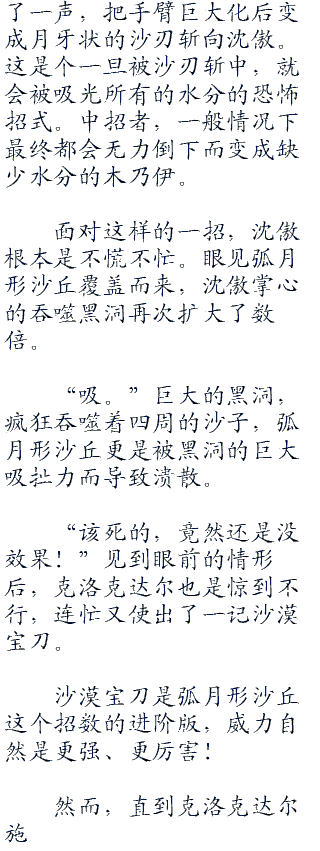 了一声，把手臂巨大化后变
成月牙状的沙刃斩向沈傲。
这是个一旦被沙刃斩中，就
会被吸光所有的水分的恐怖
招式。中招者，一般情况下
最终都会无力倒下而变成缺
少水分的木乃伊。
面对这样的一招，沈傲
根本是不慌不忙。眼见弧月
形沙丘覆盖而来，沈傲掌心
的吞噬黑洞再次扩大了数
倍。
“吸。”巨大的黑洞，
疯狂吞噬着四周的沙子，弧
月形沙丘更是被黑洞的巨大
吸扯力而导致溃散。
“该死的，竟然还是没
效果！”见到眼前的情形
后，克洛克达尔也是惊到不
行，连忙又使出了一记沙漠
宝刀。
沙漠宝刀是弧月形沙丘
这个招数的进阶版，威力自
然是更强、更厉害！
然而，直到克洛克达尔
施